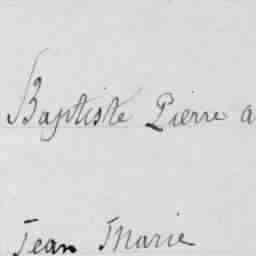 Baptiste Pierre a
Jean Marie